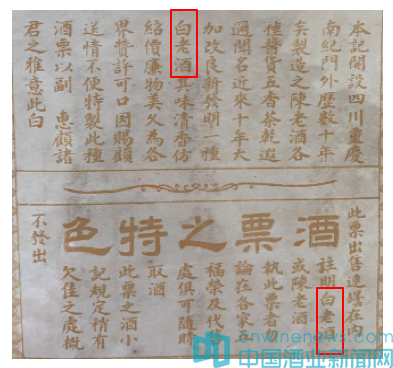 本記開設四川重慶
南紀門外歷數十年
矣製造之陳老酒各
種醬貨五香茶乾遐
邇聞名近來十年大
加改良新發明一種
白老酒其味清香仿
紹價廉物美久為各
界贊許可口因賜顧
送情不便特製此種
酒票以副 惠顧諸
君之雅意此白
酒票之特色
此票出售連罈在內
註明白老酒
或陳老酒
執此票者勿
論在各家五
福榮及代
處俱可隨時
取酒
此票之酒小
記規定稍有
欠佳之處概
不發出
cnwinenews.com
中国酒业新闻网